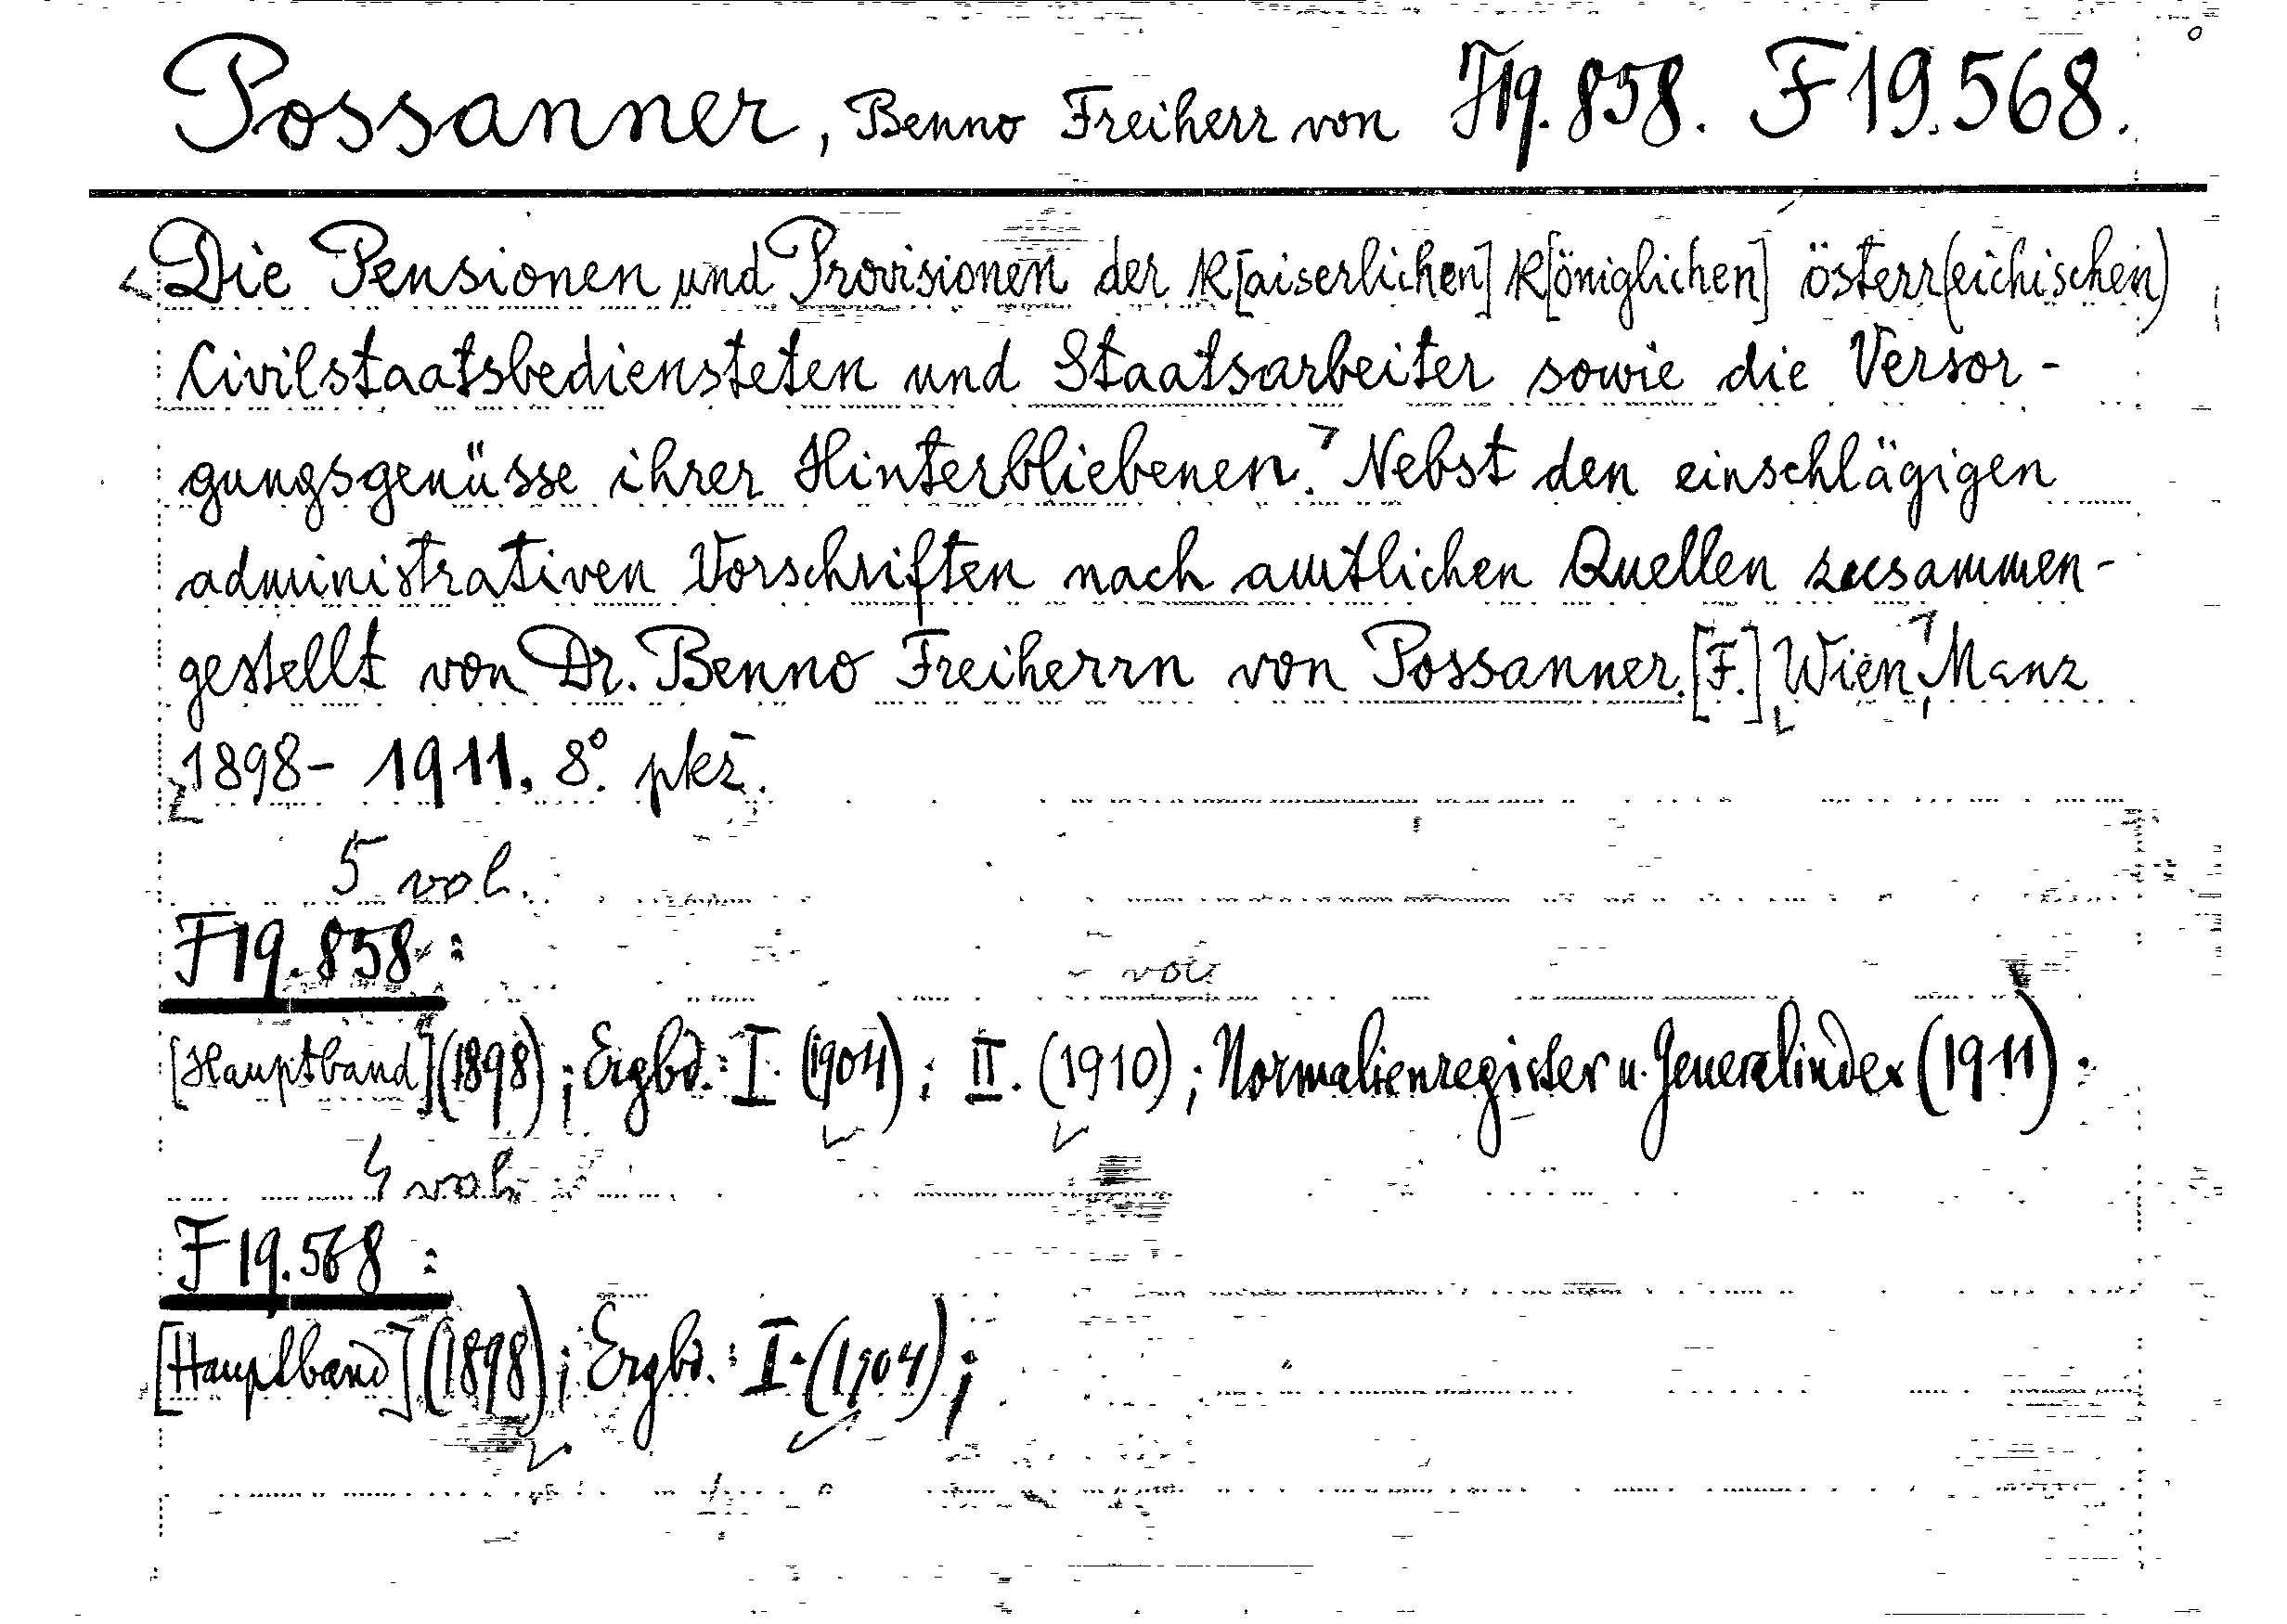 Possanner, Benno Freiherr von F19.858. F19.568.
Die Pensionen und Provisionen der K[aiserlichen] K[öniglichen] österr(eichischen)
Civilstaatsbediensteten und Staatsarbeiter sowie die Versor-
gungsgenüsse ihrer Hinterbliebenen. Nebst den einschlägigen
administrativen Vorschriften nach amtlichen Quellen zusammen-
gestellt von Dr. Benno Freiherrn von Possanner. [F.] Wien, Manz
1898-1911. 8°.
5 vol.
F19.858:
[Hauptband] (1898); Ergbd.: I. (1904); II. (1910); Normalienregister u. Generalindex (1911).
4 vol.
F19.568:
[Hauptband] (1898); Ergbd.: I. (1904);